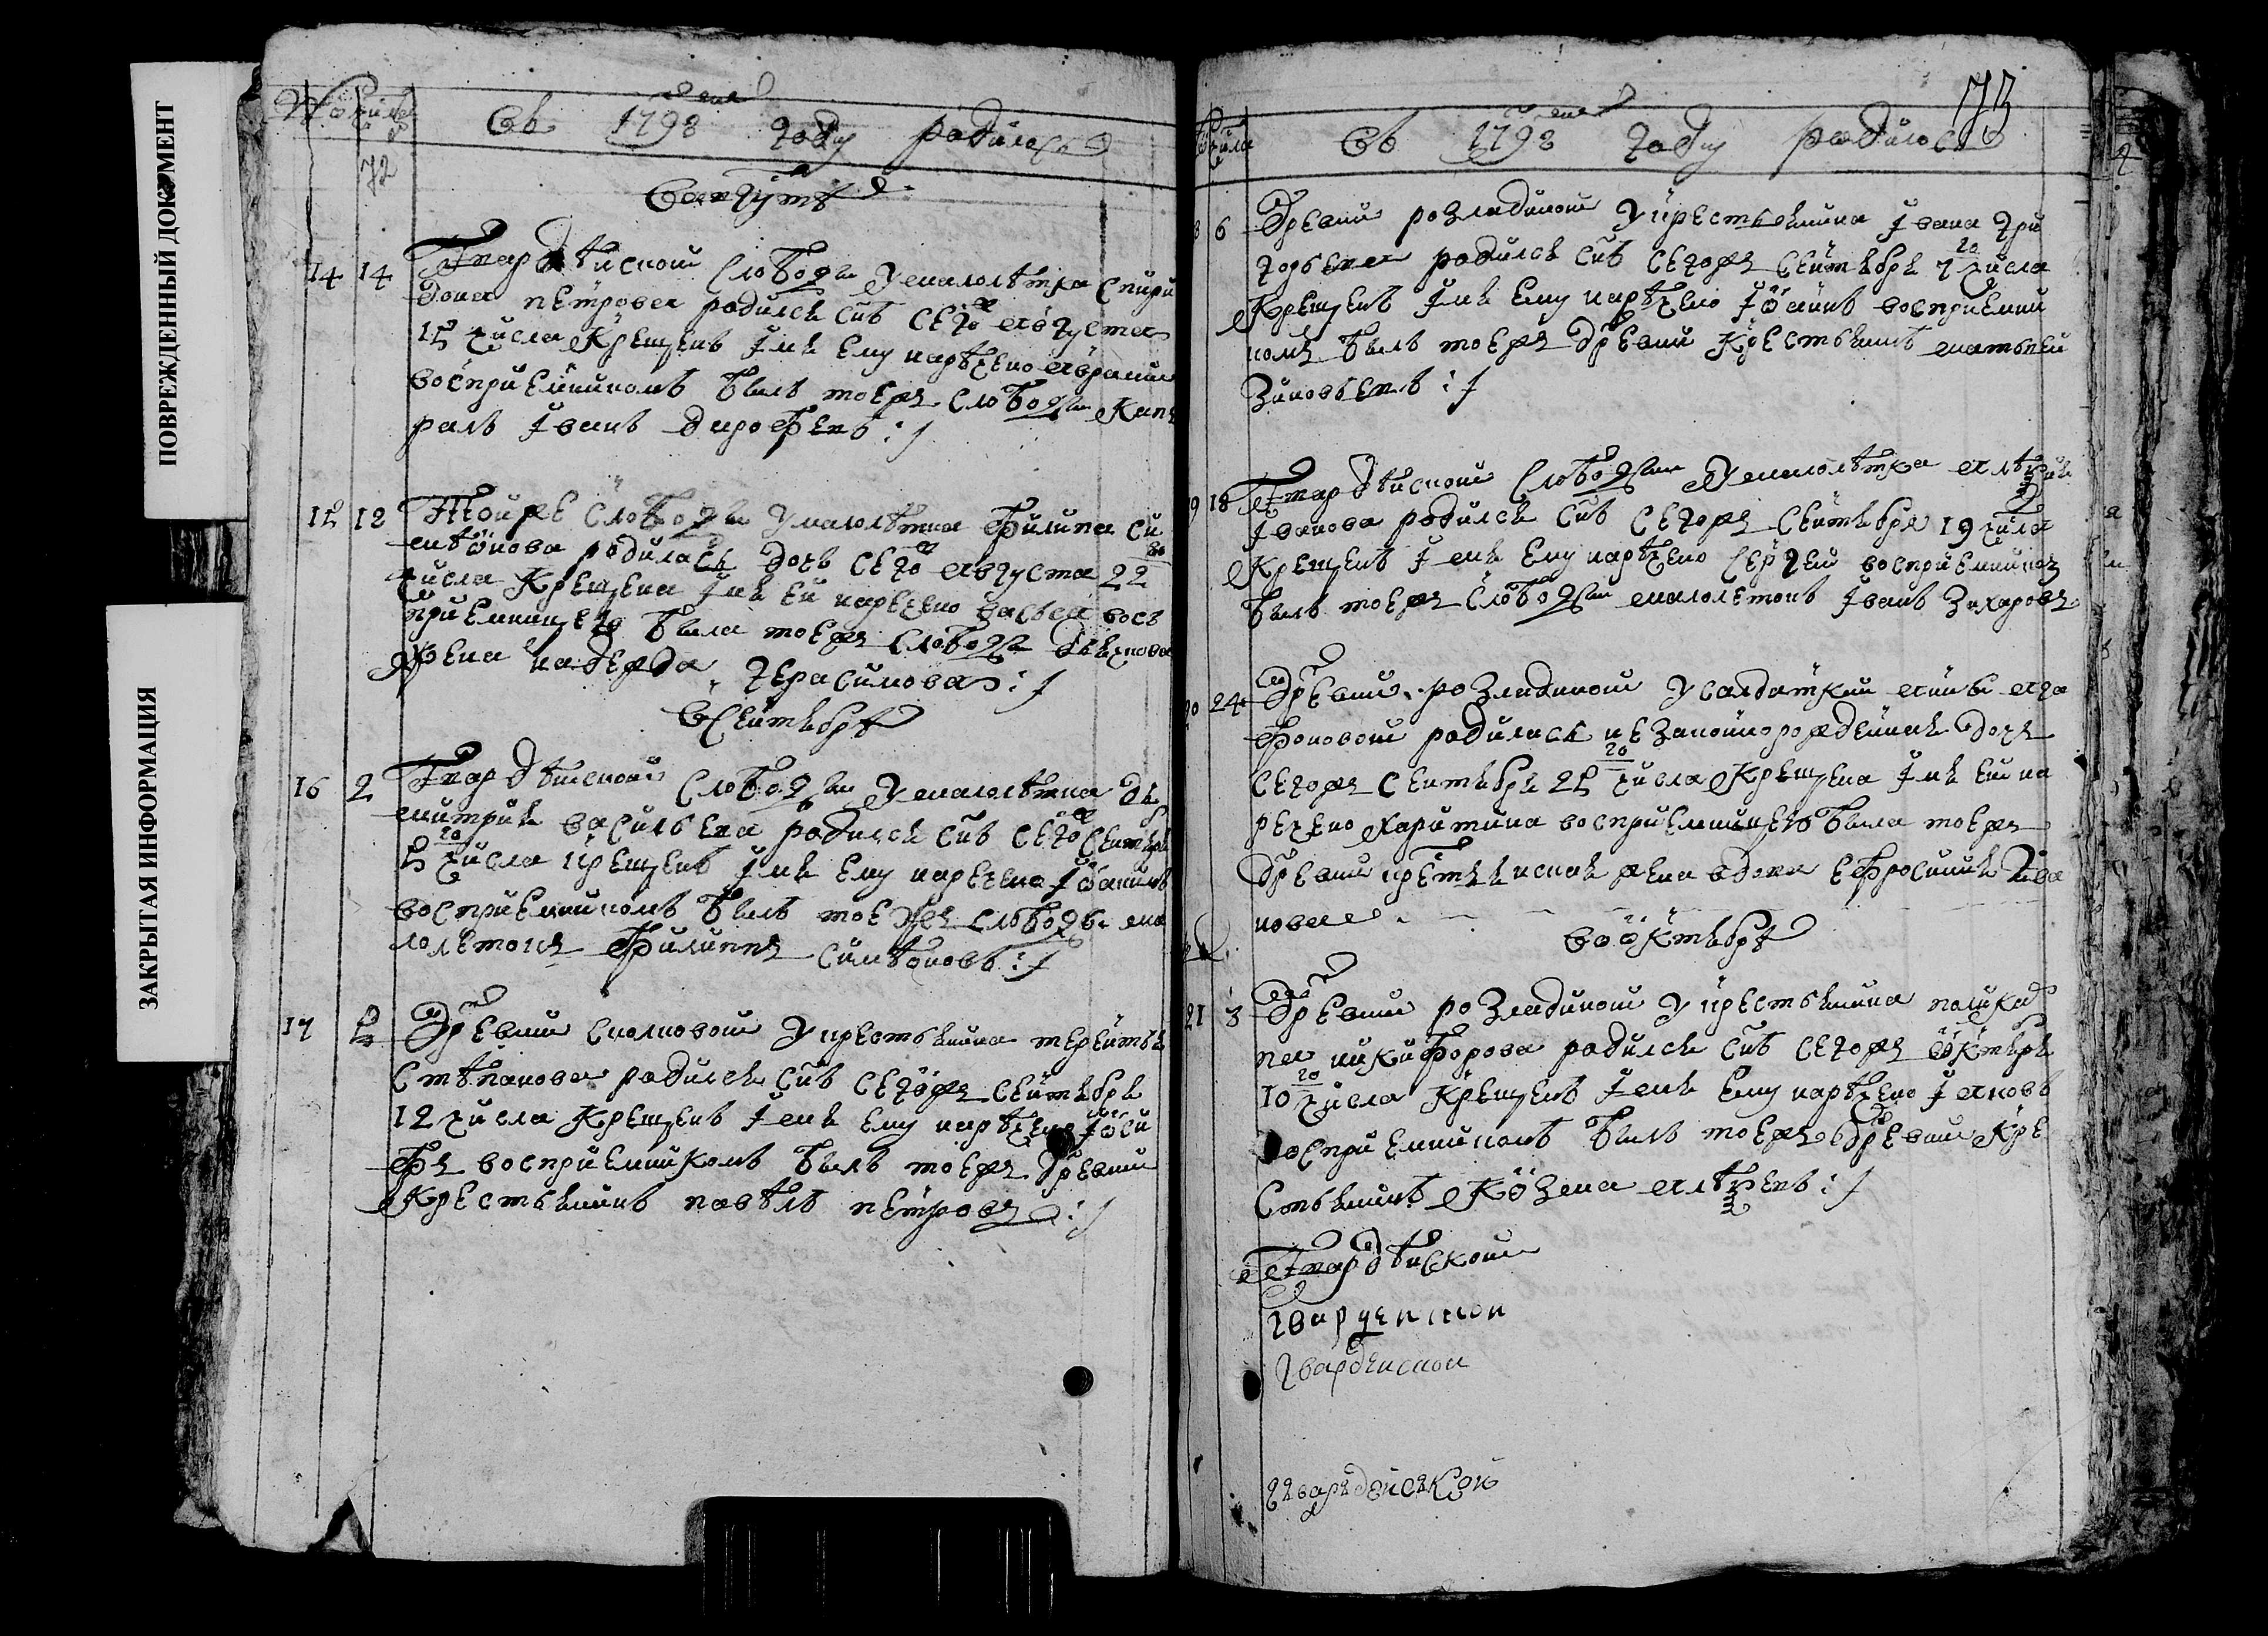 ПОВРЕЖДЕННЫЙ ДОКУМЕНТ
ЗАКРЫТАЯ ИНФОРМАЦИЯ
72
Въ 1798 году родилось
14 14 Гвардѣиской слободы у малолѣтка Спири
дона Петрова родился снъ сего августа
15 числа крещенъ имя ему нарѣчено
восприемникомъ былъ тоежъ слободы кап
ралъ Иванъ Дарофеевъ
15 18 Тоиже слободы у малолѣтка Филипа Си
мѣонова родилась дочь сего августа 22
числа крещена имя еи наречено васъ
приемницею была тоежъ слободы
жена Надежда Герасимова
в Сентябрѣ
16 2 Гвардѣиской слободы у малолѣтка Ди
митрия Васильева родился снъ сего сентября
5 числа крещенъ имя ему наречено Иоаннъ
восприемникомъ былъ тоежъ слободы ма
лолетокъ Филиппъ Симѣоновъ
17 5 Дрѣвни Сколковой у крестьянина Терентья
Стѣпанова родился снъ сегожъ сентября
12 числа крещенъ имя ему нарѣчено Иоси
фъ восприемникомъ былъ тоежъ дрѣвни
крестьянинъ Павѣлъ Петровъ
73
Въ 1798 году родилось
6 Дрѣвни Розладиной у крестьянина Ивана Гри
горьева родился снъ сегожъ сентября 7 числа
крещенъ имя ему нарѣчено Иоаннъ восприемни
комъ былъ тоежъ дрѣвни крестьянинъ Матвеи
Зиновьевъ
19 18 Гвардѣиской слободы у малолѣтка Алѣѯия
Иванова родился снъ сегожъ сентября 19 числа
крещенъ имя ему нарѣчено Сергеи восприемникомъ
былъ тоежъ слободы малолетокъ Иванъ Захаровъ
20 24 Дрѣвни Розладиной у салдатки Анны Ага
фоновой родилась незаконнорожденная дочь
сегожъ сентября 25 числа крещена имя еи на
речено Харитина восприемницею была тоежъ
дрѣвни крестьянская жена вдова Ефросиния Ива
нова
в Октябрѣ
21 3 Дрѣвни Розладиной у крестьянина Поликар
па Никифорова родился снъ сегожъ октября
10 числа крещенъ имя ему нарѣчено Иаковъ
восприемникомъ былъ тоежъ дрѣвни кре
стьянинъ Козма Алѣѯеевъ
Гвардѣискои
гвардеискои